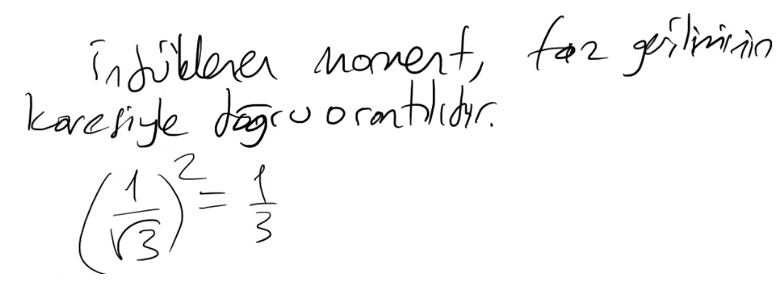 İndüklenen moment, faz geriliminin
karesiyle doğru orantılıdır.
(1/√3)² = 1/3